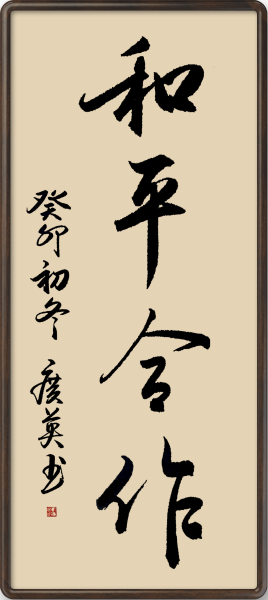 和平合作
癸卯初冬 广英书